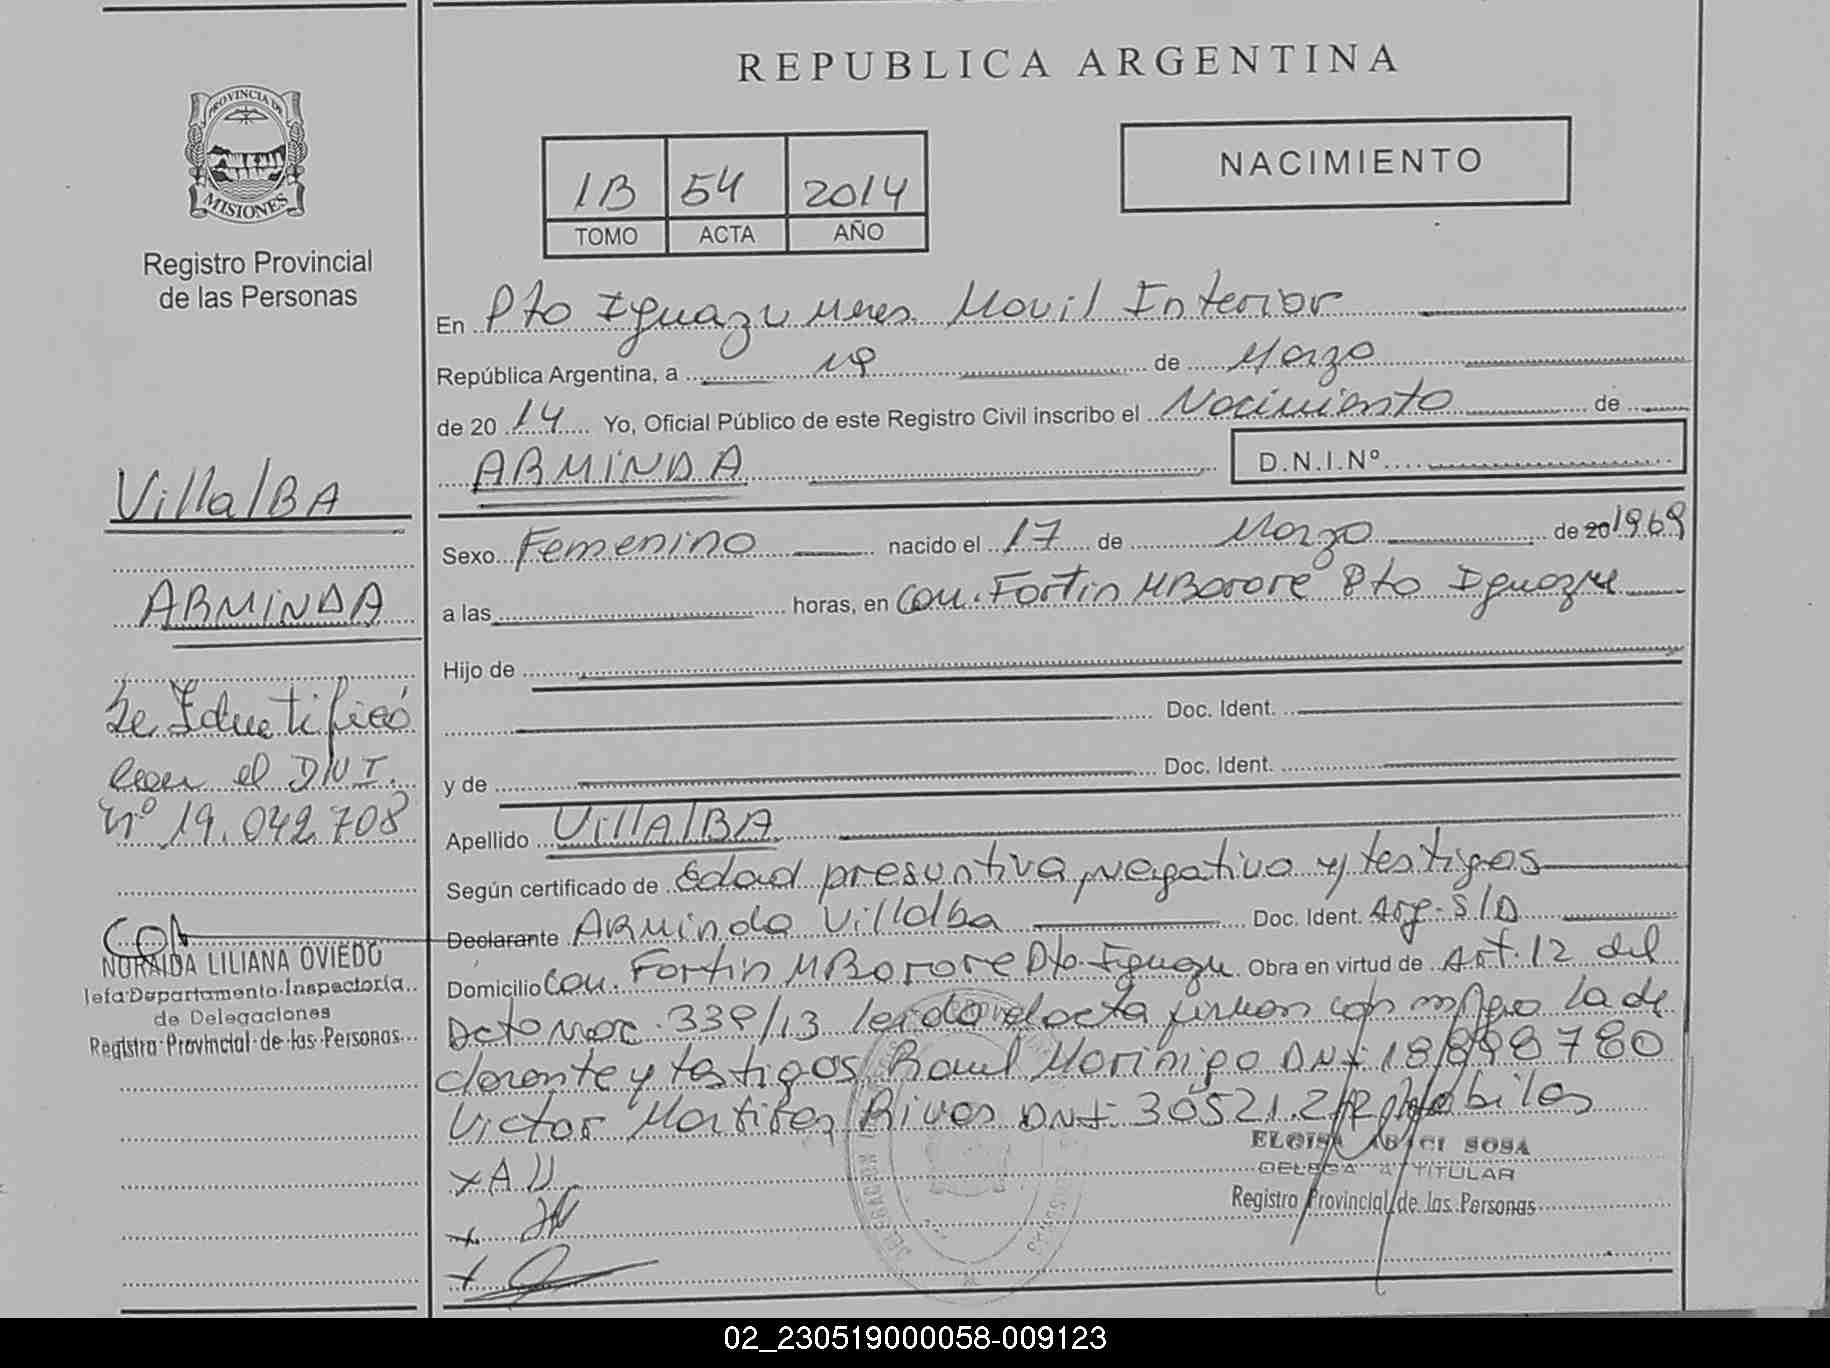 REPUBLICA ARGENTINA
PROVINCIA DE
MISIONES
Registro Provincial
de las Personas
1B 54 2014
TOMO ACTA AÑO
NACIMIENTO
En Pto Iguazu Mnes. Movil Interior
República Argentina, a 19 de Marzo
de 2014 Yo, Oficial Público de este Registro Civil inscribo el Nacimiento de
ARMINDA D.N.I.Nº
Sexo Femenino nacido el 17 de Marzo de 20 1969
a las horas, en Com. Fortin MBorore Pto Iguazu
Hijo de
Doc. Ident.
y de Doc. Ident.
Apellido VillAlBA
Según certificado de Edad presuntiva, negativo y testigos
Declarante Arminda Villalba Doc. Ident. Arg. S/D
Domicilio Com. Fortin MBorore Pto. Iguazu Obra en virtud de Art. 12 del
Dcto Nro. 339/13 leida el acta firman la de
clarante y testigos Raul Morinigo DNI 18.898780
Victor Rivas DNI 30521.2 habiles
x A V
x
x
ELOISA SOSA
DELEGADA TITULAR
Registro Provincial de las Personas
VillalBA
ARMINDA
Se Identificó
con el DNI.
Nº 19.042.708
NORAIDA LILIANA OVIEDO
Jefa Departamento Inspectoría
de Delegaciones
Registro Provincial de las Personas
02_230519000058-009123